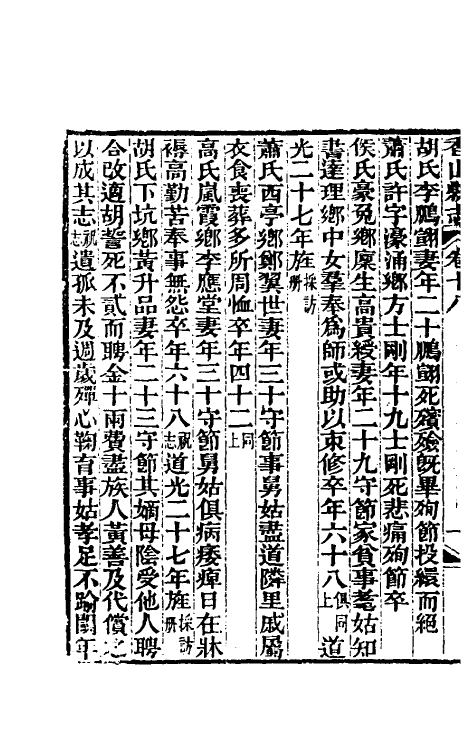 香山縣志 卷十八
胡氏李鵬翾妻年二十鵬翾死殯殮旣畢殉節投繯而絕
蕭氏許字濠涌鄉方士剛年十九士剛死悲痛殉節卒
侯氏豪兔鄉廩生高貴綬妻年二十九守節家貧事耄姑知
書達理鄉中女羣奉爲師或助以束修卒年六十八俱同上道
光二十七年旌採訪冊
蕭氏西亭鄉鄭翼世妻年三十守節事舅姑盡道隣里戚屬
衣食喪葬多所周恤卒年四十二同上
高氏嵐霞鄉李應堂妻年三十守節舅姑俱病痿痺日在牀
褥高勤苦奉事無怨卒年六十八祝志道光二十七年旌採訪冊
胡氏下坑鄉黃升品妻年二十三守節其嫡母陰受他人聘
合改適胡誓死不貳而聘金十兩費盡族人黃善及代償之
以成其志祝志遺孤未及週歲殫心鞠育事姑孝足不踰閾年